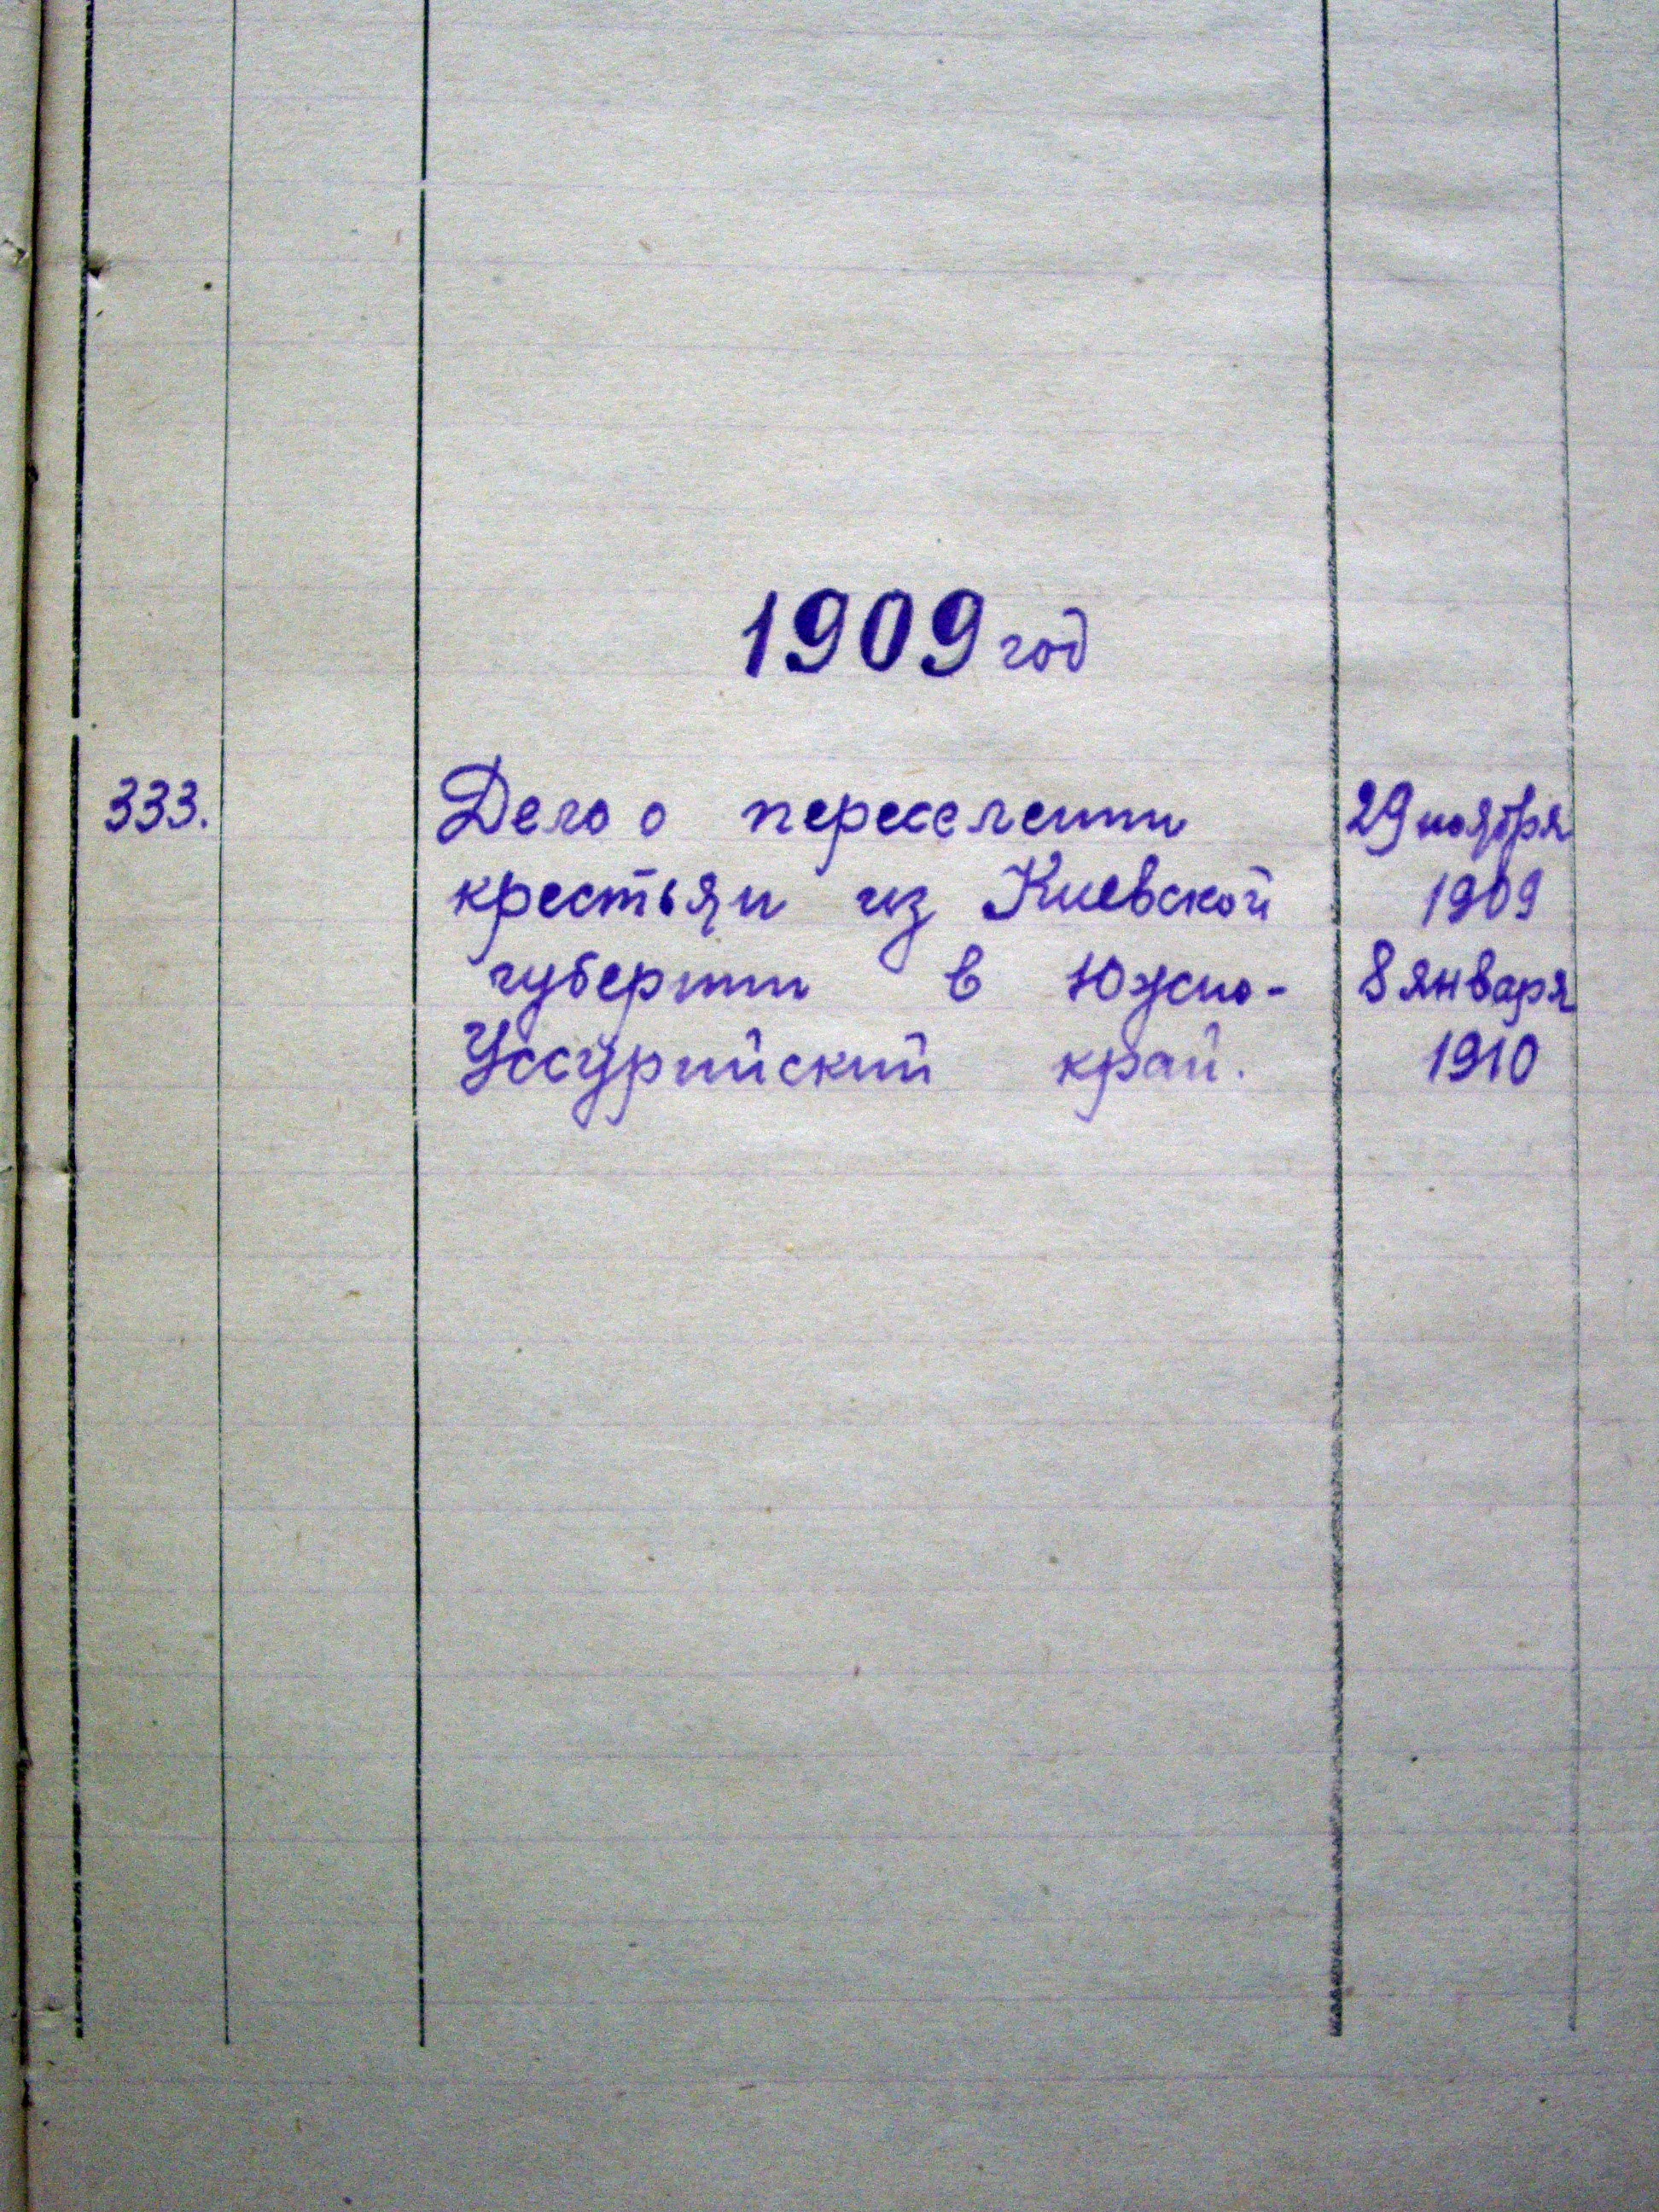 1909 год
333. Дело о переселении 29 ноября
крестьян из Киевской 1909
губернии в Южно- 8 января
Уссурийский край. 1910